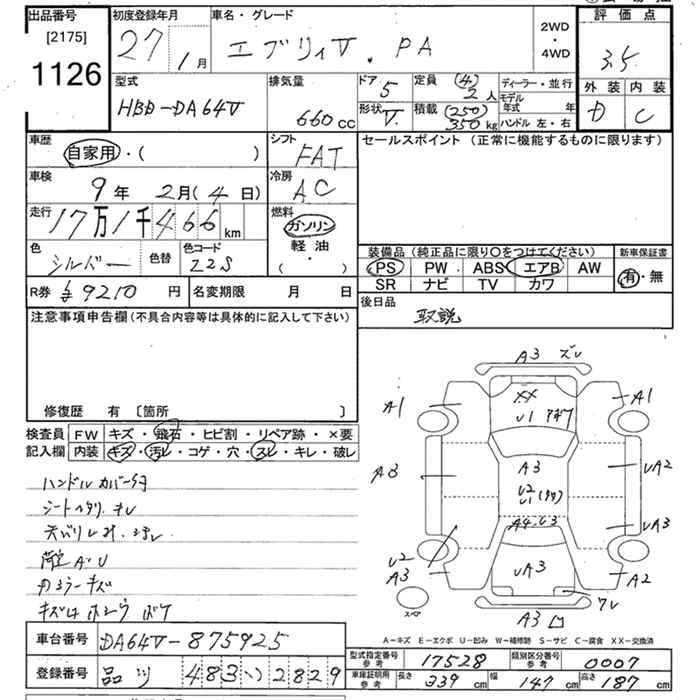 出品番号 初度登録年月 車名・グレード 評価点
[2175] 27年 1月 エブリィV. PA 2WD・4WD 3.5
1126
型式 排気量 ドア 5 定員 (4) 2人 ディーラー・並行 外装 内装
HBD-DA64V 660cc 形状 V. 積載 (250) 350kg モデル年式 年 D C
ハンドル 左・右
車歴 自家用・( ) シフト FAT セールスポイント(正常に機能するものに限ります)
車検 9年 2月(4日) 冷房 AC
走行 17万1千466km 燃料 ガソリン
軽油
・( )
色 シルバー 色替 色コード Z2S 装備品(純正品に限り○をつけてください) 新車保証書
PS PW ABS エアB AW 有・無
SR ナビ TV カワ
R券 ¥9210円 名変期限 月 日 後日品
取説
注意事項申告欄(不具合内容等は具体的に記入して下さい)
修復歴 有 〔箇所 〕
検査員 FW キズ・飛石・ヒビ割・リペア跡・×要
記入欄 内装 キズ・汚レ・コゲ・穴・スレ・キレ・破レ
ハンドルカバー付
荷室 A・U
A3 ズレ
A1 XX A1
U1
A3 A3 UA2
U2
U1
A4 U3 UA3
U2
A3 UA3 A2
スペア
A3
A-キズ E-エクボ U-凹み W-補修跡 S-サビ C-腐食 XX-交換済
車台番号 DA64V-875925
登録番号 品川 483 い 2829
型式指定番号 参考 17528 類別区分番号 参考 0007
車庫証明用 参考 長さ 339cm 幅 147cm 高さ 187cm